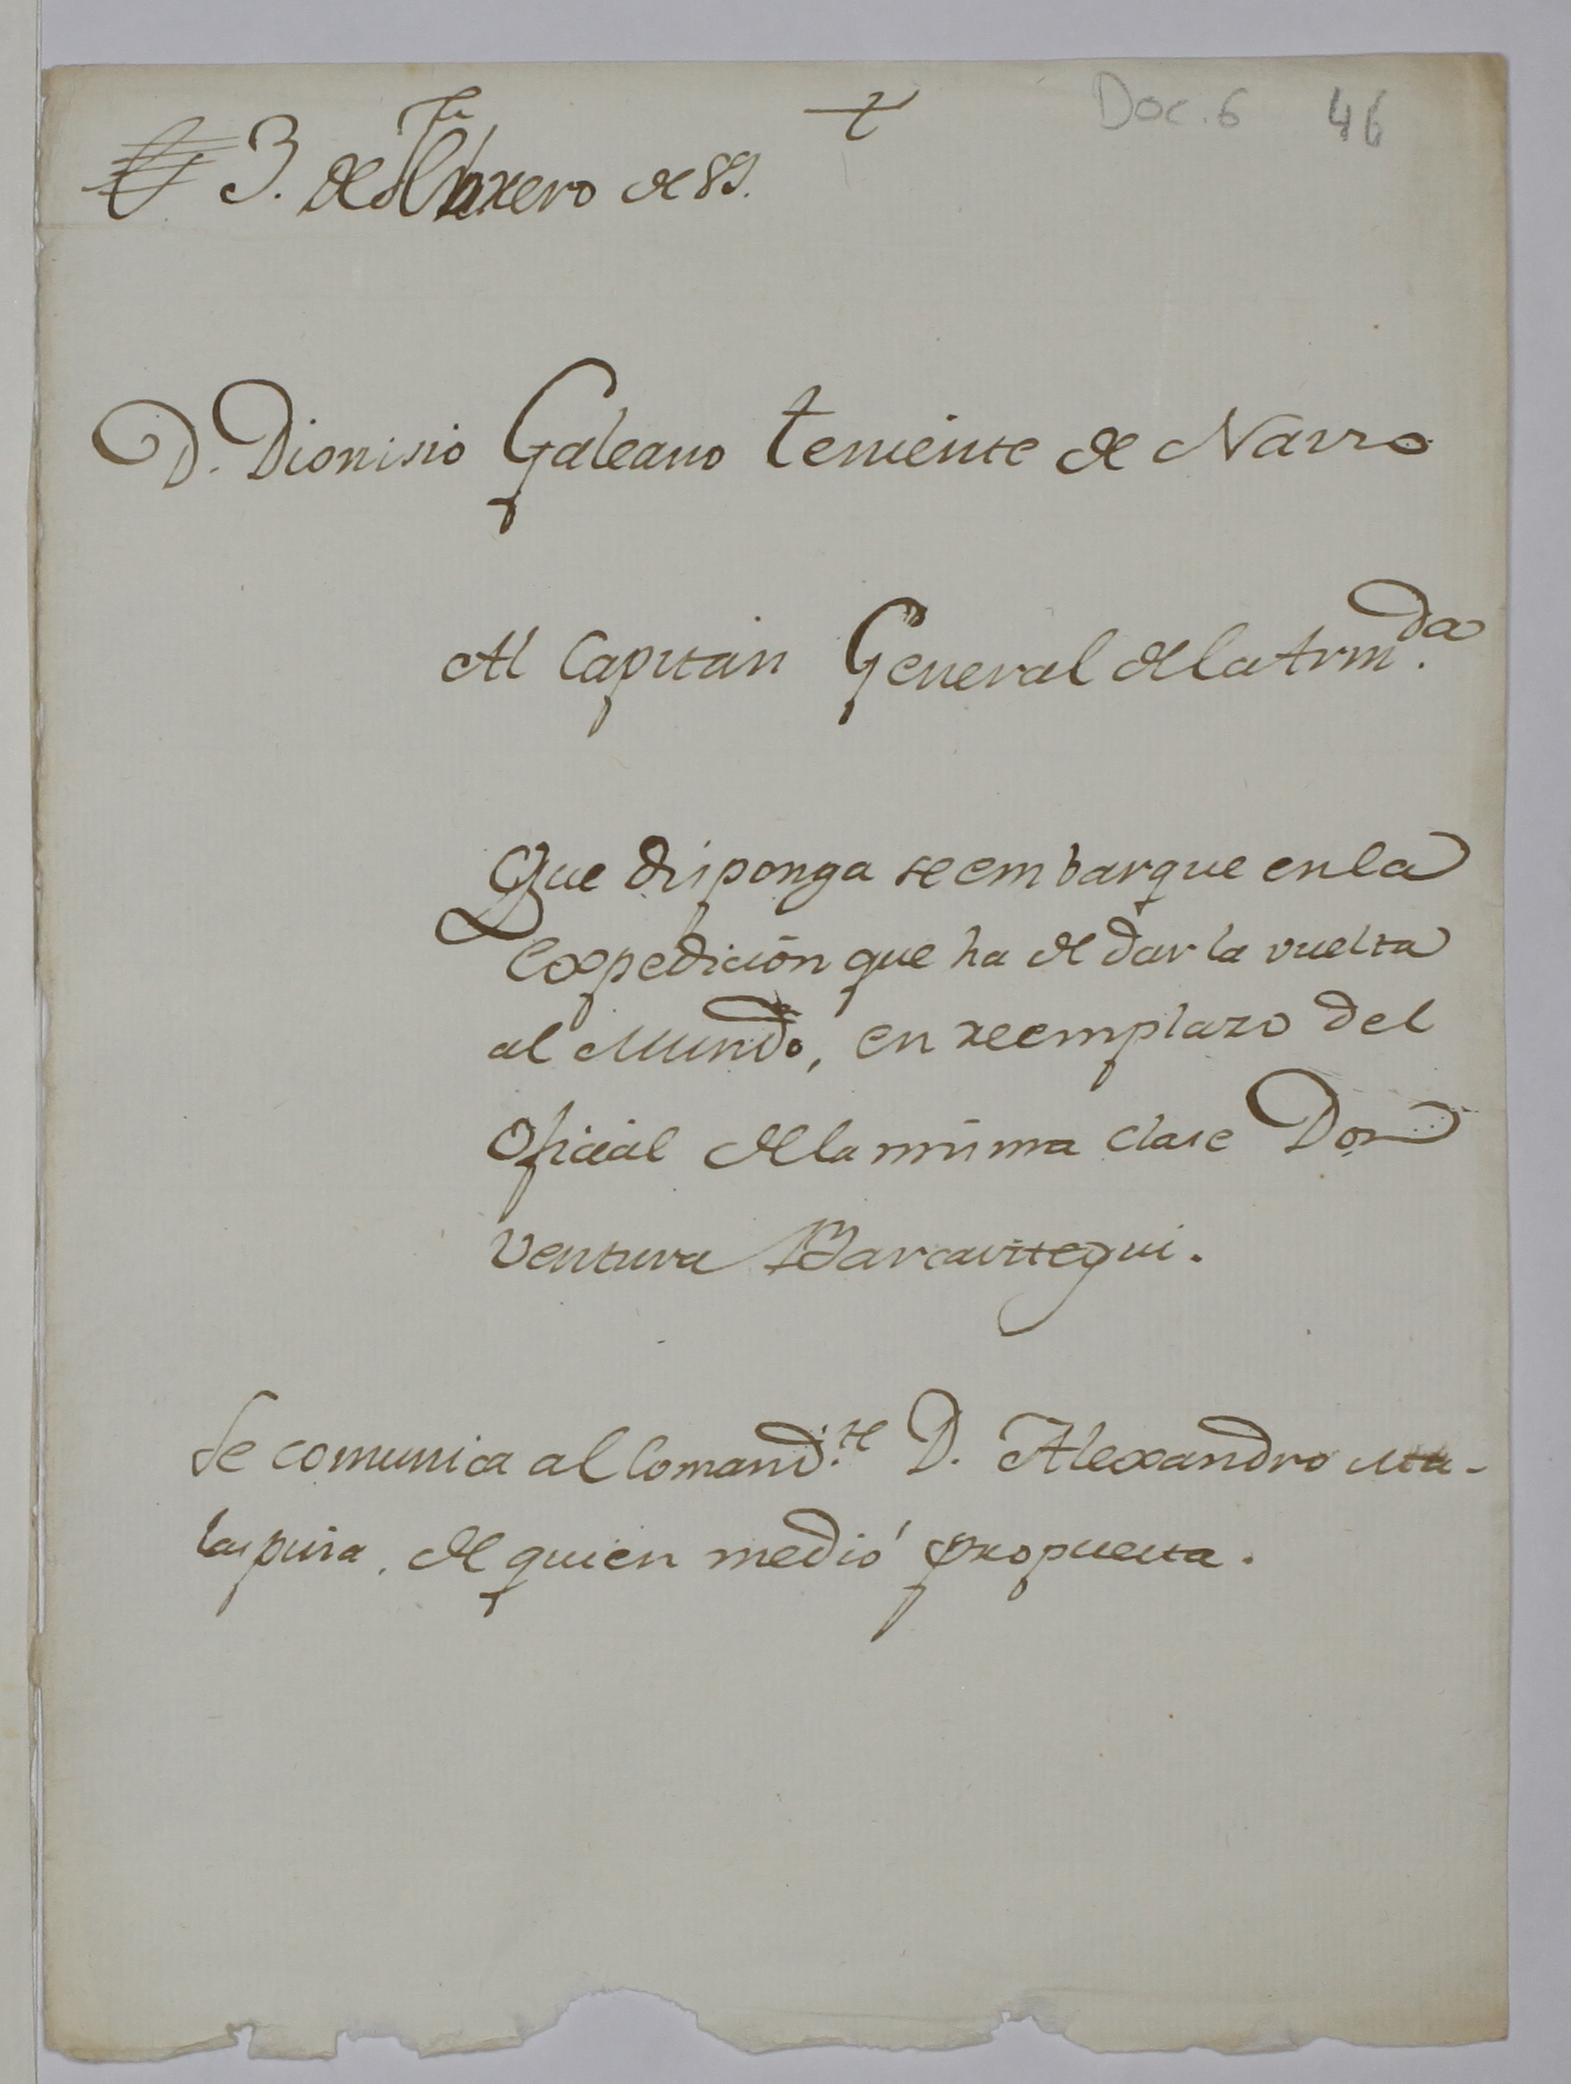 Doc. 6 46
3. de Febrero de 89.
D. Dionisio Galeano teniente de Navio
Al Capitan General de la Arm.da
Que disponga se embarque en la
Expedición que ha de dar la vuelta
al Mundo, en reemplazo del
Oficial de la misma clase Don
Ventura Barcaiztegui.
Se comunica al Comand.te D. Alexandro Ma-
laspina, de quien medió propuesta.